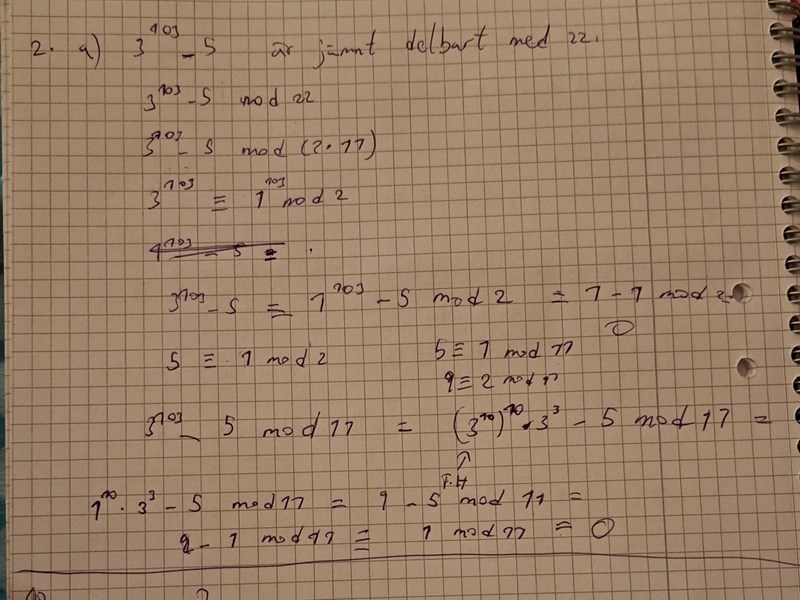 2. a) 3^103 - 5 är jämnt delbart med 22.
3^103 - 5 mod 22
3^103 - 5 mod (2·11)
3^103 ≡ 1^103 mod 2
3^103 - 5 ≡ 1^103 - 5 mod 2 = 1 - 1 mod 2
0
5 ≡ 1 mod 2 5 ≡ 1 mod 11
9 ≡ 2 mod 11
3^103 - 5 mod 11 = (3^10)^10 · 3^3 - 5 mod 11 =
↑
1^10 · 3^3 - 5 mod 11 = 9 - 5 mod 11 =
2 - 1 mod 11 ≡ 1 mod 11 = 0